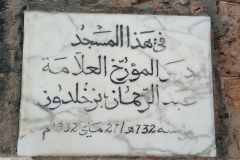 في هذا المسجد
درس المؤرخ العلامة
عبد الرحمان بن خلدون
سنة 732هـ/27 ماي 1332م